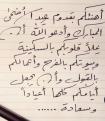 أهنئكم بقدوم عيد الأضحى
المبارك وأدعو الله أن
يملأ قلوبكم بالسكينة
وبيوتكم بالفرح وأعمالكم
بالقبول وأن يجعل
أيامكم كلها أعياداً
وسعادة ......